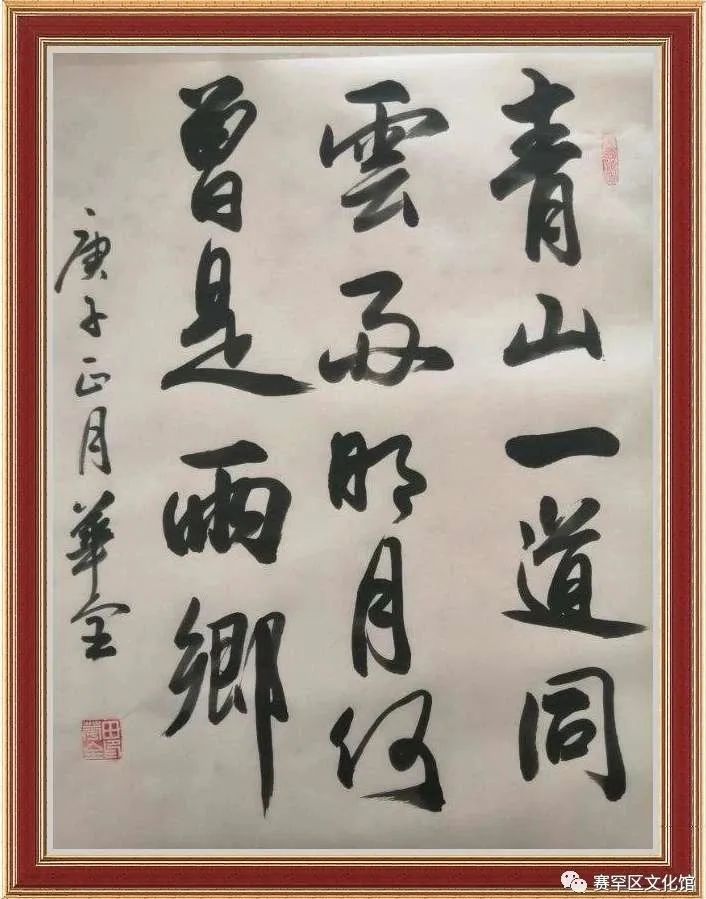 青山一道同
雲雨明月何
曾是兩鄉
庚子正月華全
赛罕区文化馆